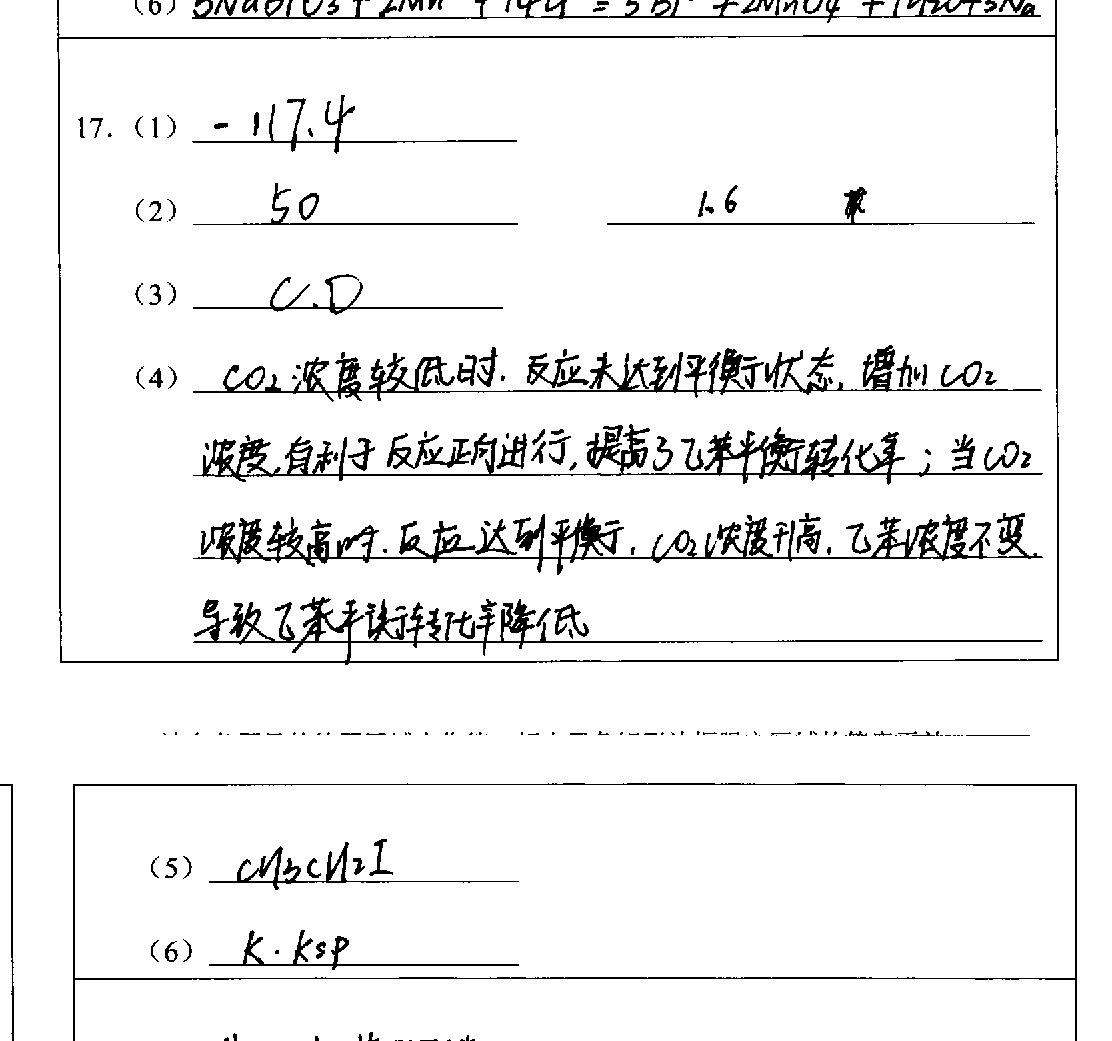 (6) 5NaBiO3+2Mn²⁺+14H⁺=5Bi³⁺+2MnO4⁻+7H2O+5Na
17. (1) -117.4
(2) 50 1.6
(3) C.D
(4) CO2浓度较低时.反应未达到平衡状态,增加CO2
浓度,有利于反应正向进行,提高了乙苯平衡转化率;当CO2
浓度较高时.反应达到平衡,CO2浓度升高,乙苯浓度不变.
导致乙苯平衡转化率降低
(5) CH3CH2I
(6) K·Ksp